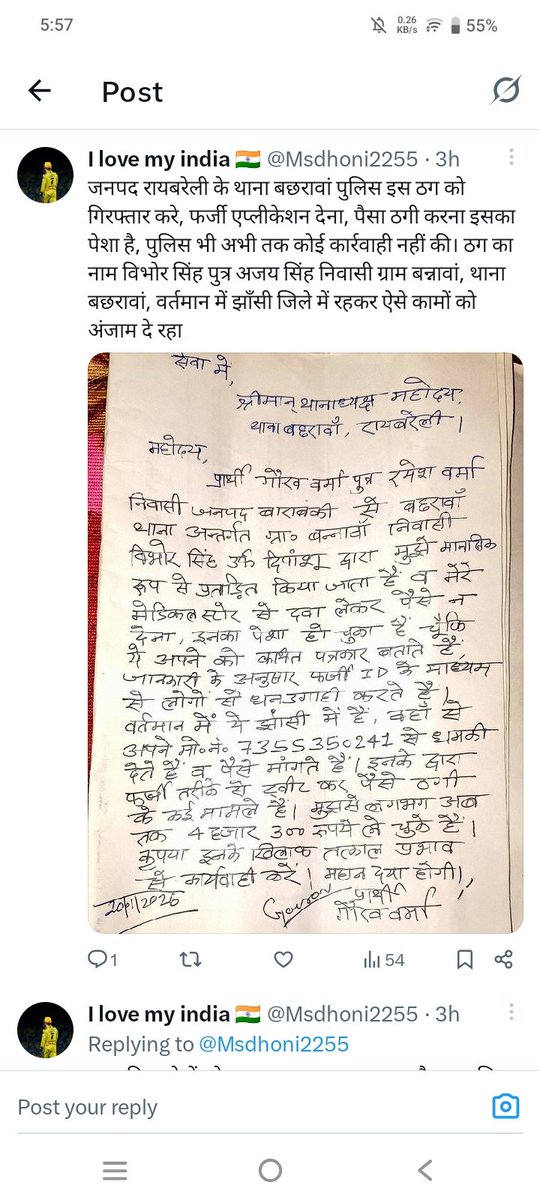 5:57
0.26
KB/s
55%
Post
I love my india 🇮🇳 @Msdhoni2255 · 3h
जनपद रायबरेली के थाना बछरावां पुलिस इस ठग को
गिरफ्तार करे, फर्जी एप्लीकेशन देना, पैसा ठगी करना इसका
पेशा है, पुलिस भी अभी तक कोई कार्रवाही नहीं की। ठग का
नाम विभोर सिंह पुत्र अजय सिंह निवासी ग्राम बन्नावां, थाना
बछरावां, वर्तमान में झाँसी जिले में रहकर ऐसे कामों को
अंजाम दे रहा
सेवा में,
श्रीमान् थानाध्यक्ष महोदय,
थाना बछरावाँ, रायबरेली।
महोदय,
प्रार्थी गौरव वर्मा पुत्र रमेश वर्मा
निवासी जनपद बाराबंकी से बछरावाँ
थाना अन्तर्गत ग्रा० बन्नावाँ निवासी
विभोर सिंह उर्फ दिपांशू द्वारा मुझे मानसिक
रूप से प्रताड़ित किया जाता है व मेरे
मेडिकल स्टोर से दवा लेकर पैसे न
देना, इनका पेशा हो चुका है चूँकि
ये अपने को कथित पत्रकार बताते हैं,
जानकारी के अनुसार फर्जी ID के माध्यम
से लोगों से धनउगाही करते हैं।
वर्तमान में ये झांसी में हैं, वहाँ से
अपने मो.नं. 7355350241 से धमकी
देते हैं व पैसे मांगते हैं। इनके द्वारा
फर्जी तरीके से ट्वीट कर पैसे ठगी
के कई मामले हैं। मुझसे लगभग अब
तक 4 हजार 300 रूपये ले चुके हैं।
कृपया इनके खिलाफ तत्काल प्रभाव
से कार्यवाही करें। महान दया होगी।,
20/1/2026
Gourav
प्रार्थी
गौरव वर्मा
1
54
I love my india 🇮🇳 @Msdhoni2255 · 3h
Replying to @Msdhoni2255
Post your reply